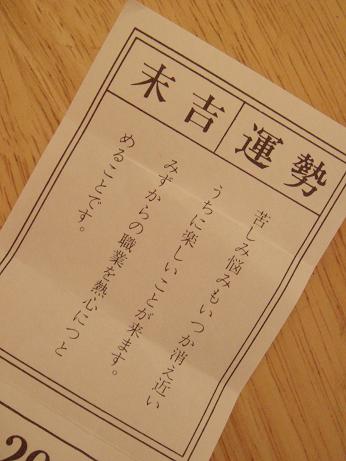 運勢
末吉
苦しみ悩みもいつか消え近い
うちに楽しいことが来ます。
みずからの職業を熱心につと
めることです。